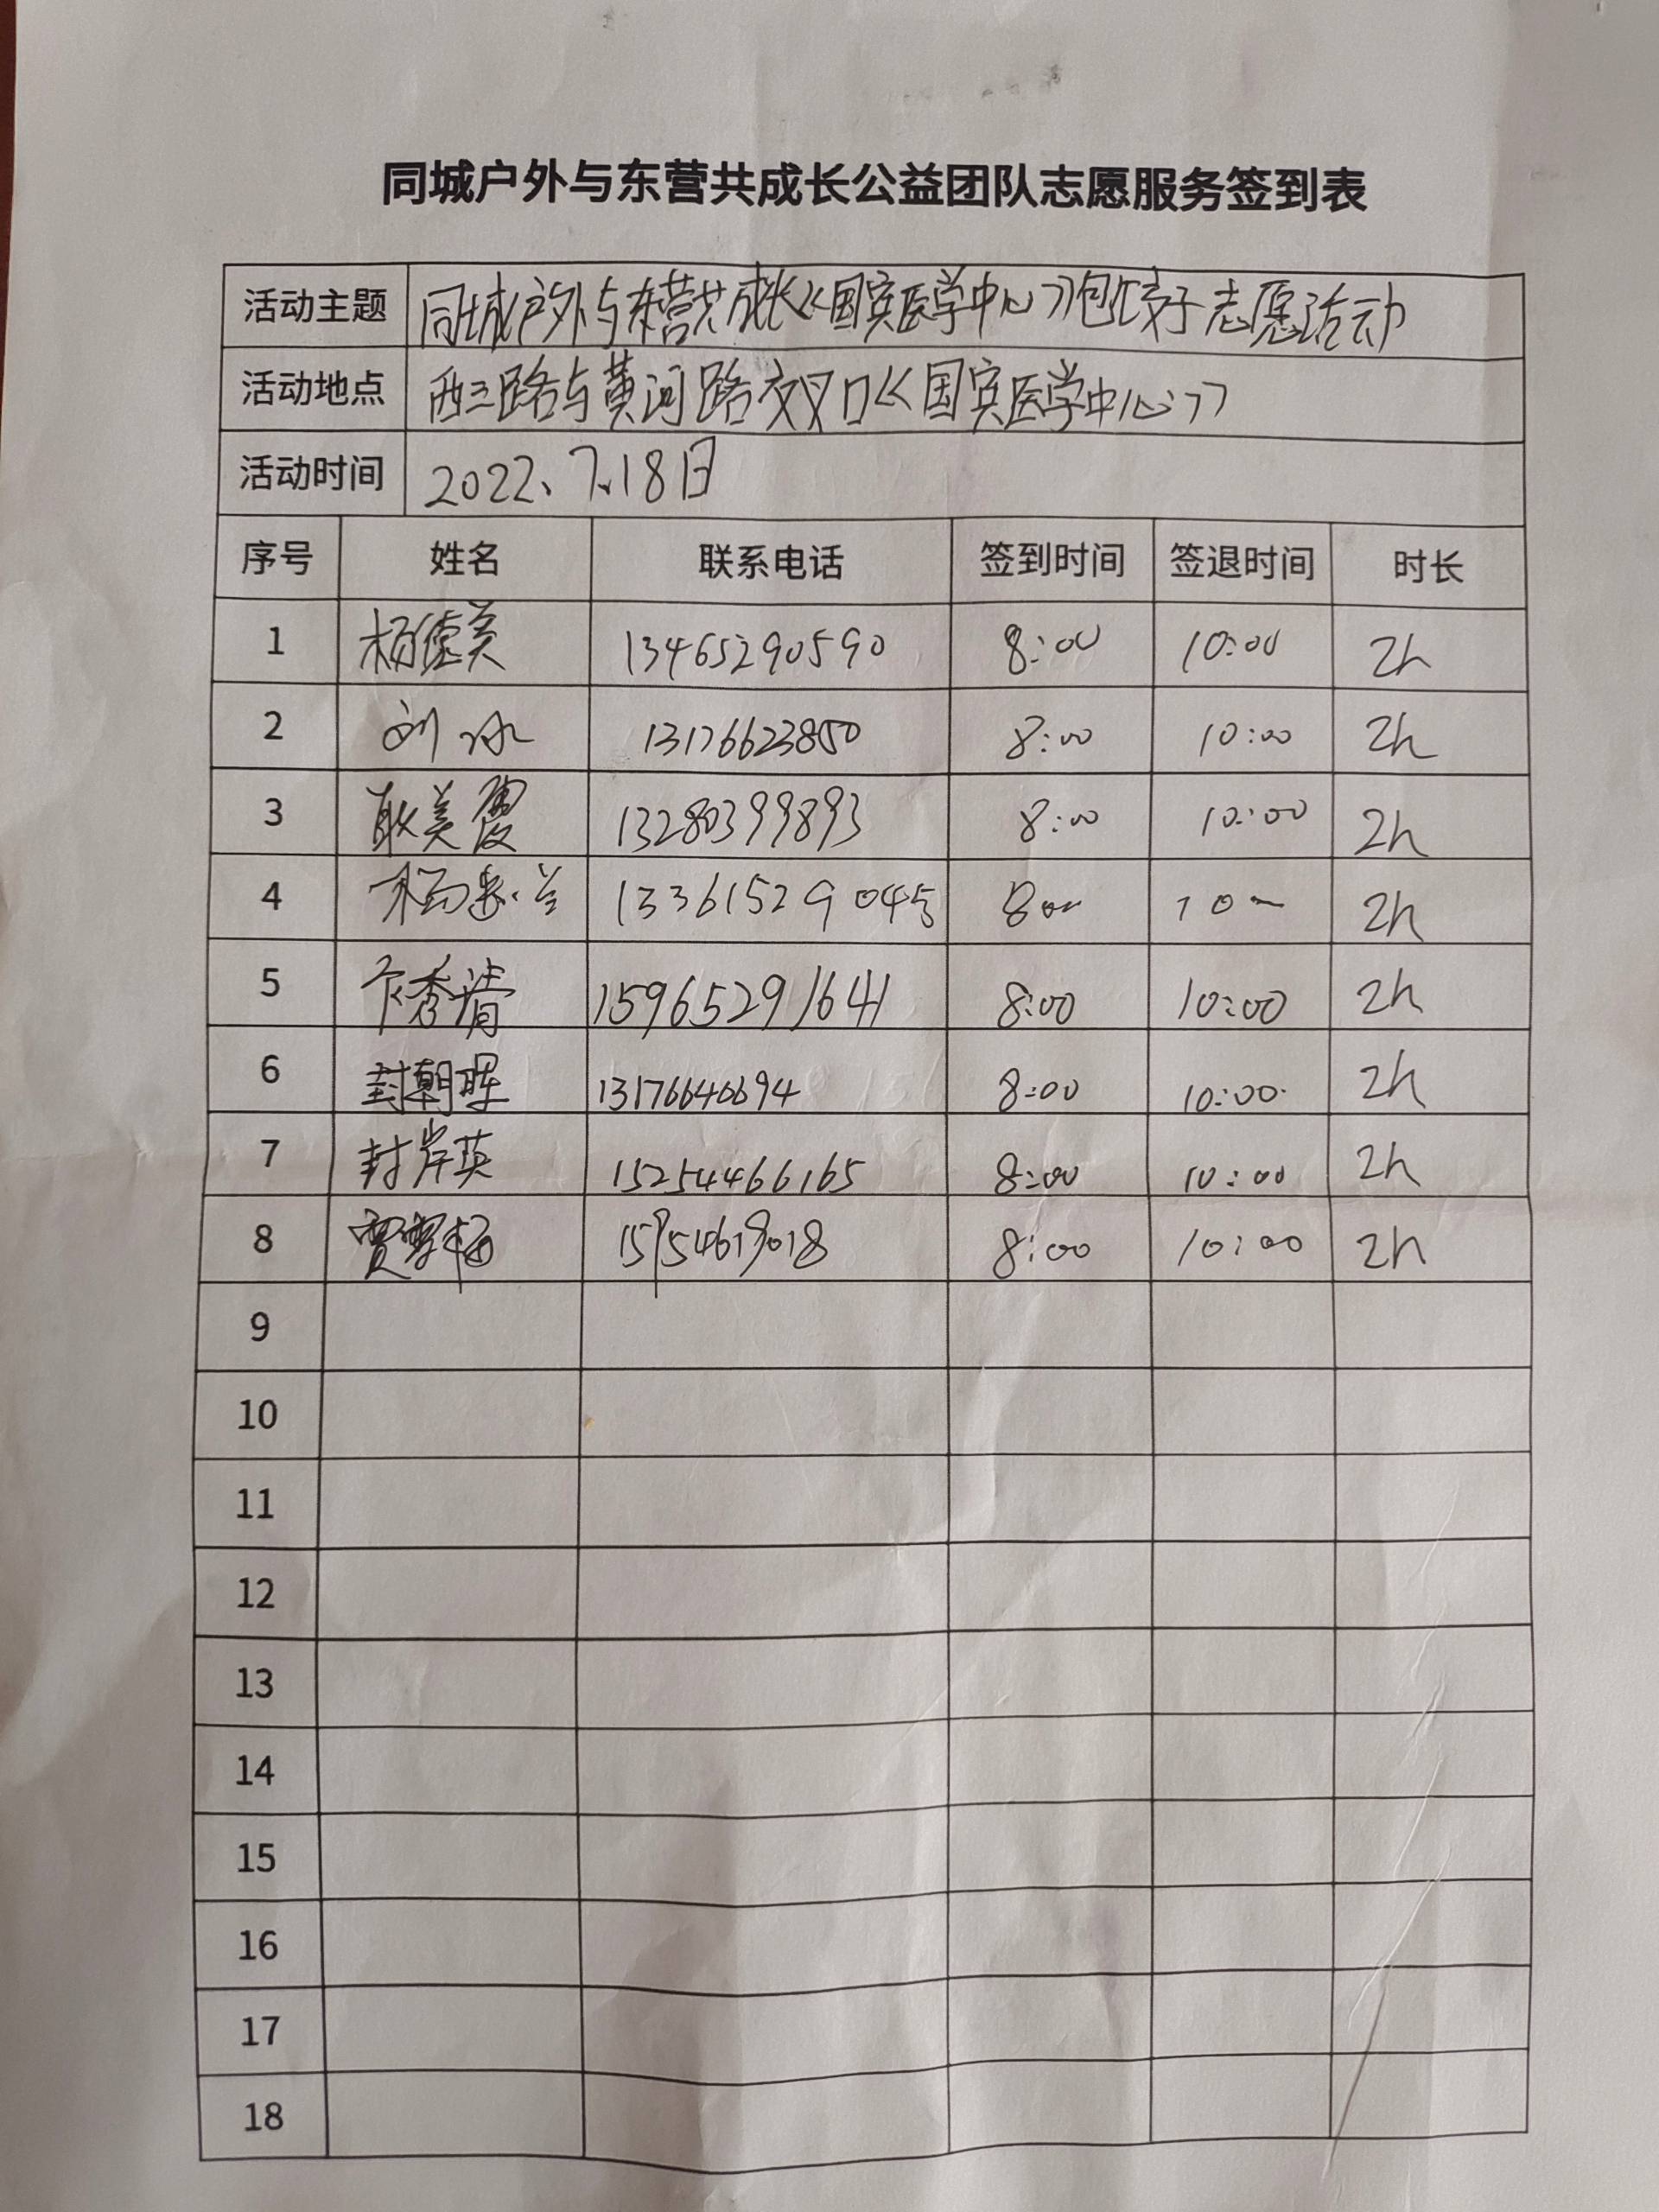 同城户外与东营共成长公益团队志愿服务签到表
活动主题 同城户外与东营共成长《国宾医学中心》包饺子志愿活动
活动地点 西三路与黄河路交叉口《国宾医学中心》
活动时间 2022、7、18日
序号 姓名 联系电话 签到时间 签退时间 时长
1 杨德美 13465290590 8:00 10:00 2h
2 刘冰 13176623850 8:00 10:00 2h
3 耿美霞 13280399893 8:00 10:00 2h
4 杨 兰 13361529045 8 10 2h
5 卞秀清 15965291641 8:00 10:00 2h
6 封朝晖 13176646694 8:00 10:00 2h
7 封岸英 15254466165 8:00 10:00 2h
8 贾雪梅 8:00 10:00 2h
9
10
11
12
13
14
15
16
17
18